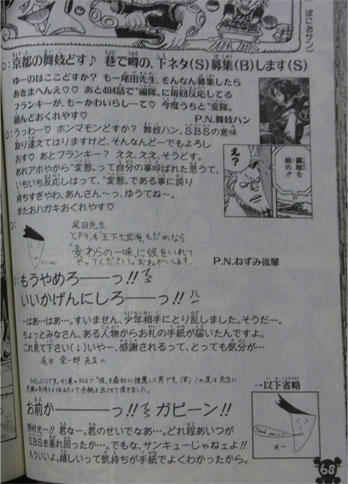 D：京都の舞妓どす♪ 巷で噂の、下ネタ(S)募集(B)します(S)
ゆーのはここどすか？ もー尾田先生、そんなん募集したら
あきまへんえ♡♡ あと494話で"編隊"に毎回反応してる
フランキーが、もーかわいらしーて♡ 今度うちと"変隊"
組んどおくれやす♡
P.N.舞妓ハン
O：うっわー♡ ホンマモンどすか？ 舞妓ハン。SBSの意味
取り違えてはりますけど、そんなんどーでもよろし
おす♡ あとフランキー？ ええ、ええ、そうどす。
あれアホやから"変態"って自分の事呼ばれた思うて、
いちいち反応しはって、"変態"である事に誇り
持ちすぎやわ、あんさん〜っ、ゆうてね〜。
またおハガキおくれやす♡
え？
D：
尾田先生
CP9も、王下七武海もだめなら
"麦わらの一味"に彼をいれて
やってください。
P.N.ねずみ後輩
O：もうやめろーーっ!!
いいかげんにしろーーっ!!
―はあ―はあ…。すいません、少年相手にとり乱しました。そうだ…。
ちょっとみなさん、ある人物からお礼の手紙が届いたんですよ。
これ見て下さい(↓)いやー、感謝されるって、とっても気分が…
尾田栄一郎先生へ
→以下省略
お前かーーーーっ!! ガビーン!!
野村光…!! 君なー。君のせいでなあ…。どれ程あいつが
SBSを暴れ回ったか…。でもな、サンキューじゃねェよ!!
もういいよ。嬉しいって気持ちが手紙でよくわかったから。
68